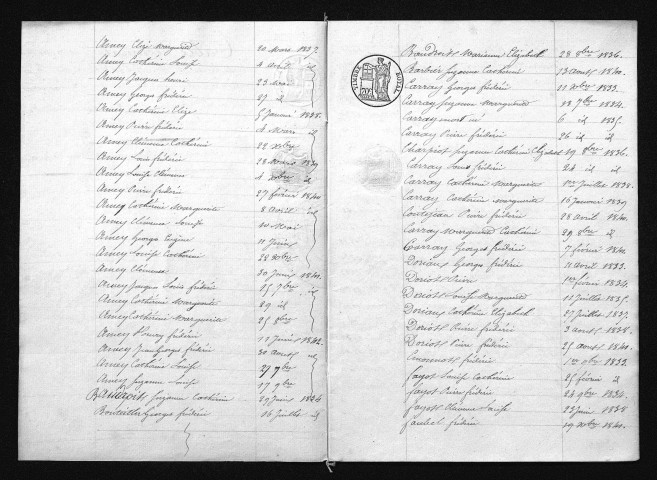 Amey Elize Marguerite 20 Mars 1837
Amey Catherine Louise 4 Avril id
Amey Jacques henri 23 Mai
Amey Georges frédéric 29 id
Amey Catherine Elize 5 Janvier 1838
Amey Pierre frédéric 4 Mars id
Amey Clémence Catherine 22 xbre
Amey Louis frédéric 28 Mars 1839
Amey Louise Clémence 4 xbre id
Amey Pierre frédéric 27 février 1840
Amey Catherine Marguerite 8 Avril id
Amey Clémence Louise 20 Mai
Amey Georges Eugène 11 Juin
Amey Louise Catherine 28 xbre
Amey Clémence 30 Janvier 1841
Amey Jacques Louis frédéric 25 7bre
Amey Catherine Marguerite 29 id
Amey Catherine Marguerite 25 8bre
Amey Pierre frédéric 11 Janvier 1842
Amey Jean Georges frédéric 30 Août id
Amey Catherine Louise 27 9bre
Amey Suzanne Louise 17 9bre
Baudroit Suzanne Catherine 29 Juin 1824
Bouteiller Georges frédéric 16 Juillet id
TIMBRE ROYAL
Baudroit Marianne Elizabeth 28 8bre 1836
Barbier Suzanne Catherine 13 Août 1840
Carray Georges frédéric 11 xbre 1833
Carray Suzanne Marguerite 18 7bre 1834
Carray mort né 6 id 1835
Carray Pierre frédéric 26 id id
Charpiot Suzanne Catherine Elizabeth 19 8bre 1836
Carray Louis frédéric 24 id id
Carray Catherine Marguerite 1er Juillet 1838
Carray Catherine Marguerite 16 Janvier 1839
Coulejean Pierre frédéric 28 Avril 1840
Carray Marguerite Catherine 29 8bre id
Carray Georges frédéric 7 février 1841
Doriaux Georges frédéric 11 Avril 1833
Doriot Pierre 1er février 1834
Doriot Louise Marguerite 11 Juillet 1835
Doriaux Catherine Elizabeth 27 Juillet 1837
Doriot Pierre frédéric 3 Août 1838
Doriot Pierre frédéric 25 Août 1840
frédéric 1er xbre 1833
fayot Louise Catherine 25 février id
fayot Pierre frédéric 24 9bre 1834
fayot Louise 23 Juin 1838
frédéric 19 xbre 1840